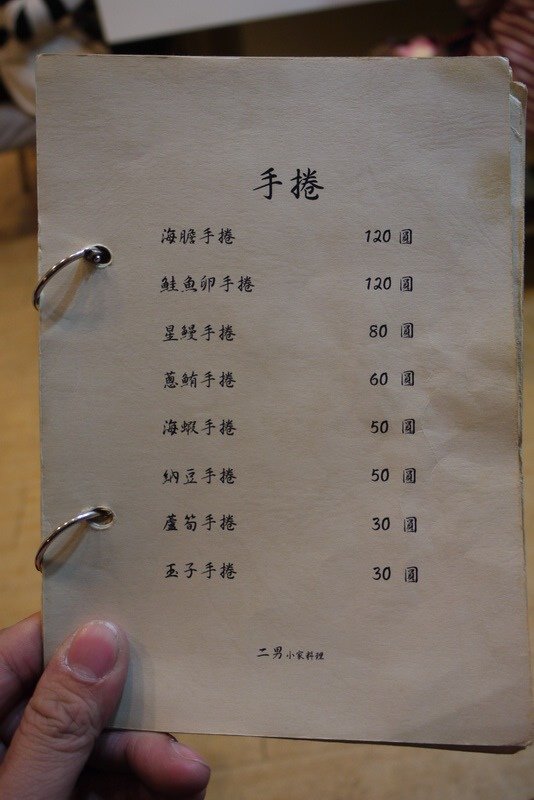 手捲
海膽手捲 120 圓
鮭魚卵手捲 120 圓
星鰻手捲 80 圓
蔥鮪手捲 60 圓
海蝦手捲 50 圓
納豆手捲 50 圓
蘆筍手捲 30 圓
玉子手捲 30 圓
二男小家料理